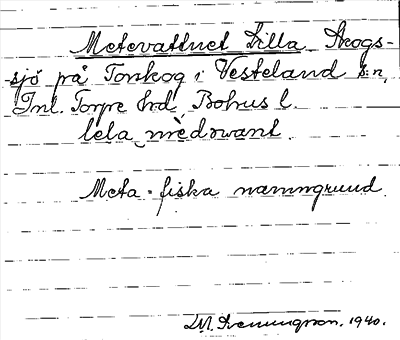 Metevattnet Lilla Skogs-
sjö på Torskog i Vesteland s:n,
Inl. Torpe hrd, Bohus l.
lela
Meta = fiska namngrund.
1940.